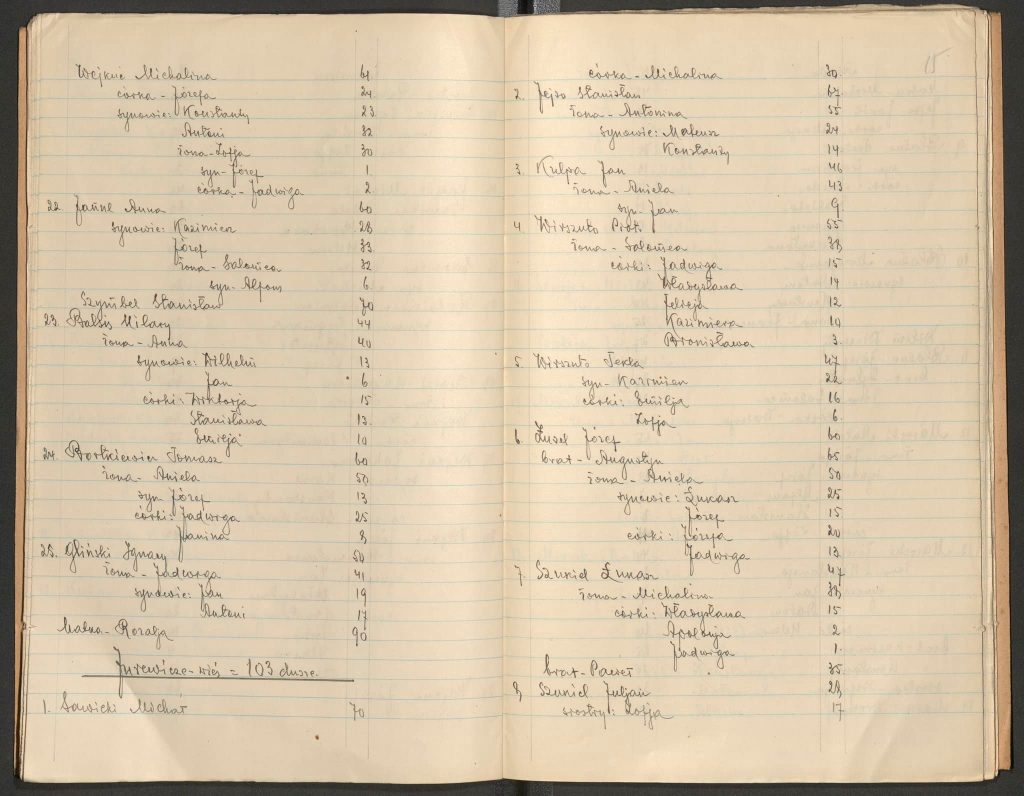 Wojkuć Michalina 61
córka - Józefa 24
synowie: Konstanty 23
Antoni 32
żona - Zofja 30
syn - Józef 1.
córka - Jadwiga 2
22. Anna 60
synowie: Kazimierz 28
Józef 33
żona - Salomea 32
syn - Alfons 6
Szymbel Stanisław 70
23. Balsis Hilary 44
żona - Anna 40
synowie: Wilhelm 13
Jan 6
córki: Wiktorja 15
Stanisława 13.
10
24. Bortkiewicz Tomasz 60
żona - Aniela 50
syn - Józef 13
córki: Jadwiga 25
Janina 8
25. Gliński Ignacy 50
żona - Jadwiga 41
synowie: Jan 19
Antoni 17
Matka - Rozalja 90
Jurewicze - wieś = 103 dusze.
1. Sawicki Michał 70
15
córka - Michalina 30.
2. Stanisław 67
żona - Antonina 55
synowie: Mateusz 24
Konstanty 14
3. Kulpa Jan 46
żona - Aniela 43
syn - Jan 9.
4. Wirszuto Piotr 55
żona - Salomea 38
córki: Jadwiga 15
Władysława 14
Felicja 12
Kazimiera 10
Bronisława 3.
5. Wirszuto Tekla 47
syn - Kazimierz 22
córki: Emilja 16
Zofja 6.
6. Józef 60
brat - Augustyn 65
żona - Aniela 50
synowie: Łukasz 25
Józef 15
córki: Józefa 20
Jadwiga 13.
7. Szuniel Łukasz 47
żona - Michalina 38
córki: Władysława 15
Apolonja 2
Jadwiga 1.
brat - Paweł 35.
8. Szuniel Juljan 28
siostry: Zofja 17